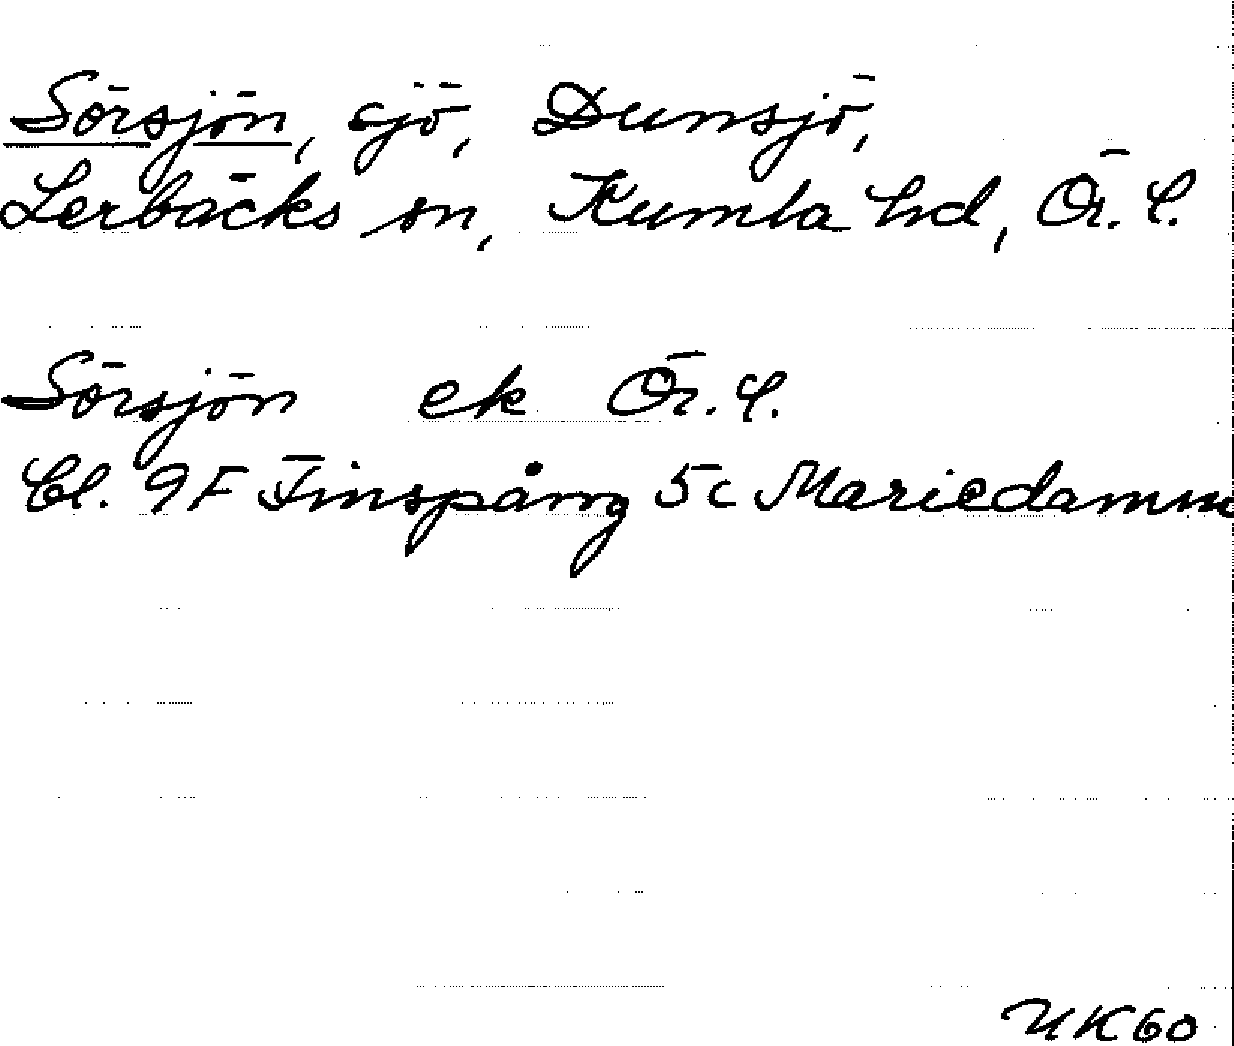 Sörsjön, sjö, Dunsjö,
Lerbäcks sn, Kumla hd, Ör. l.
Sörsjön ek Ör. l.
Bl. 9F Finspång 5c Mariedamm
UK60